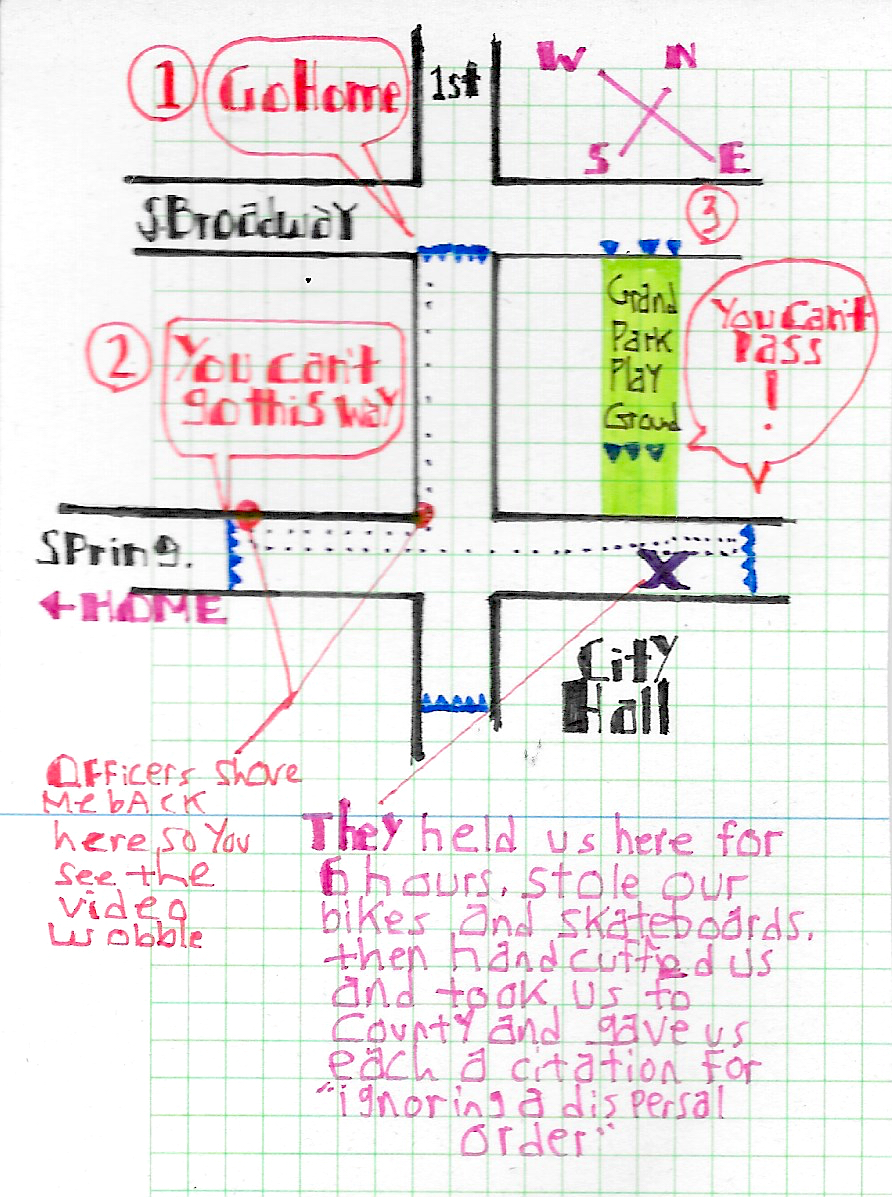 1
Go Home
1st
W N
S E
S Broadway
3
Grand
Park
Play
Ground
You Can't
Pass
!
2
You can't
go this way
Spring.
←HOME
City
Hall
Officers shove
Me bACK
here so You
see the
video
wobble
They held us here for
6 hours, stole our
bikes and skateboards,
then handcuffed us
and took us to
County and gave us
each a citation for
"ignoring a dispersal
order"
X